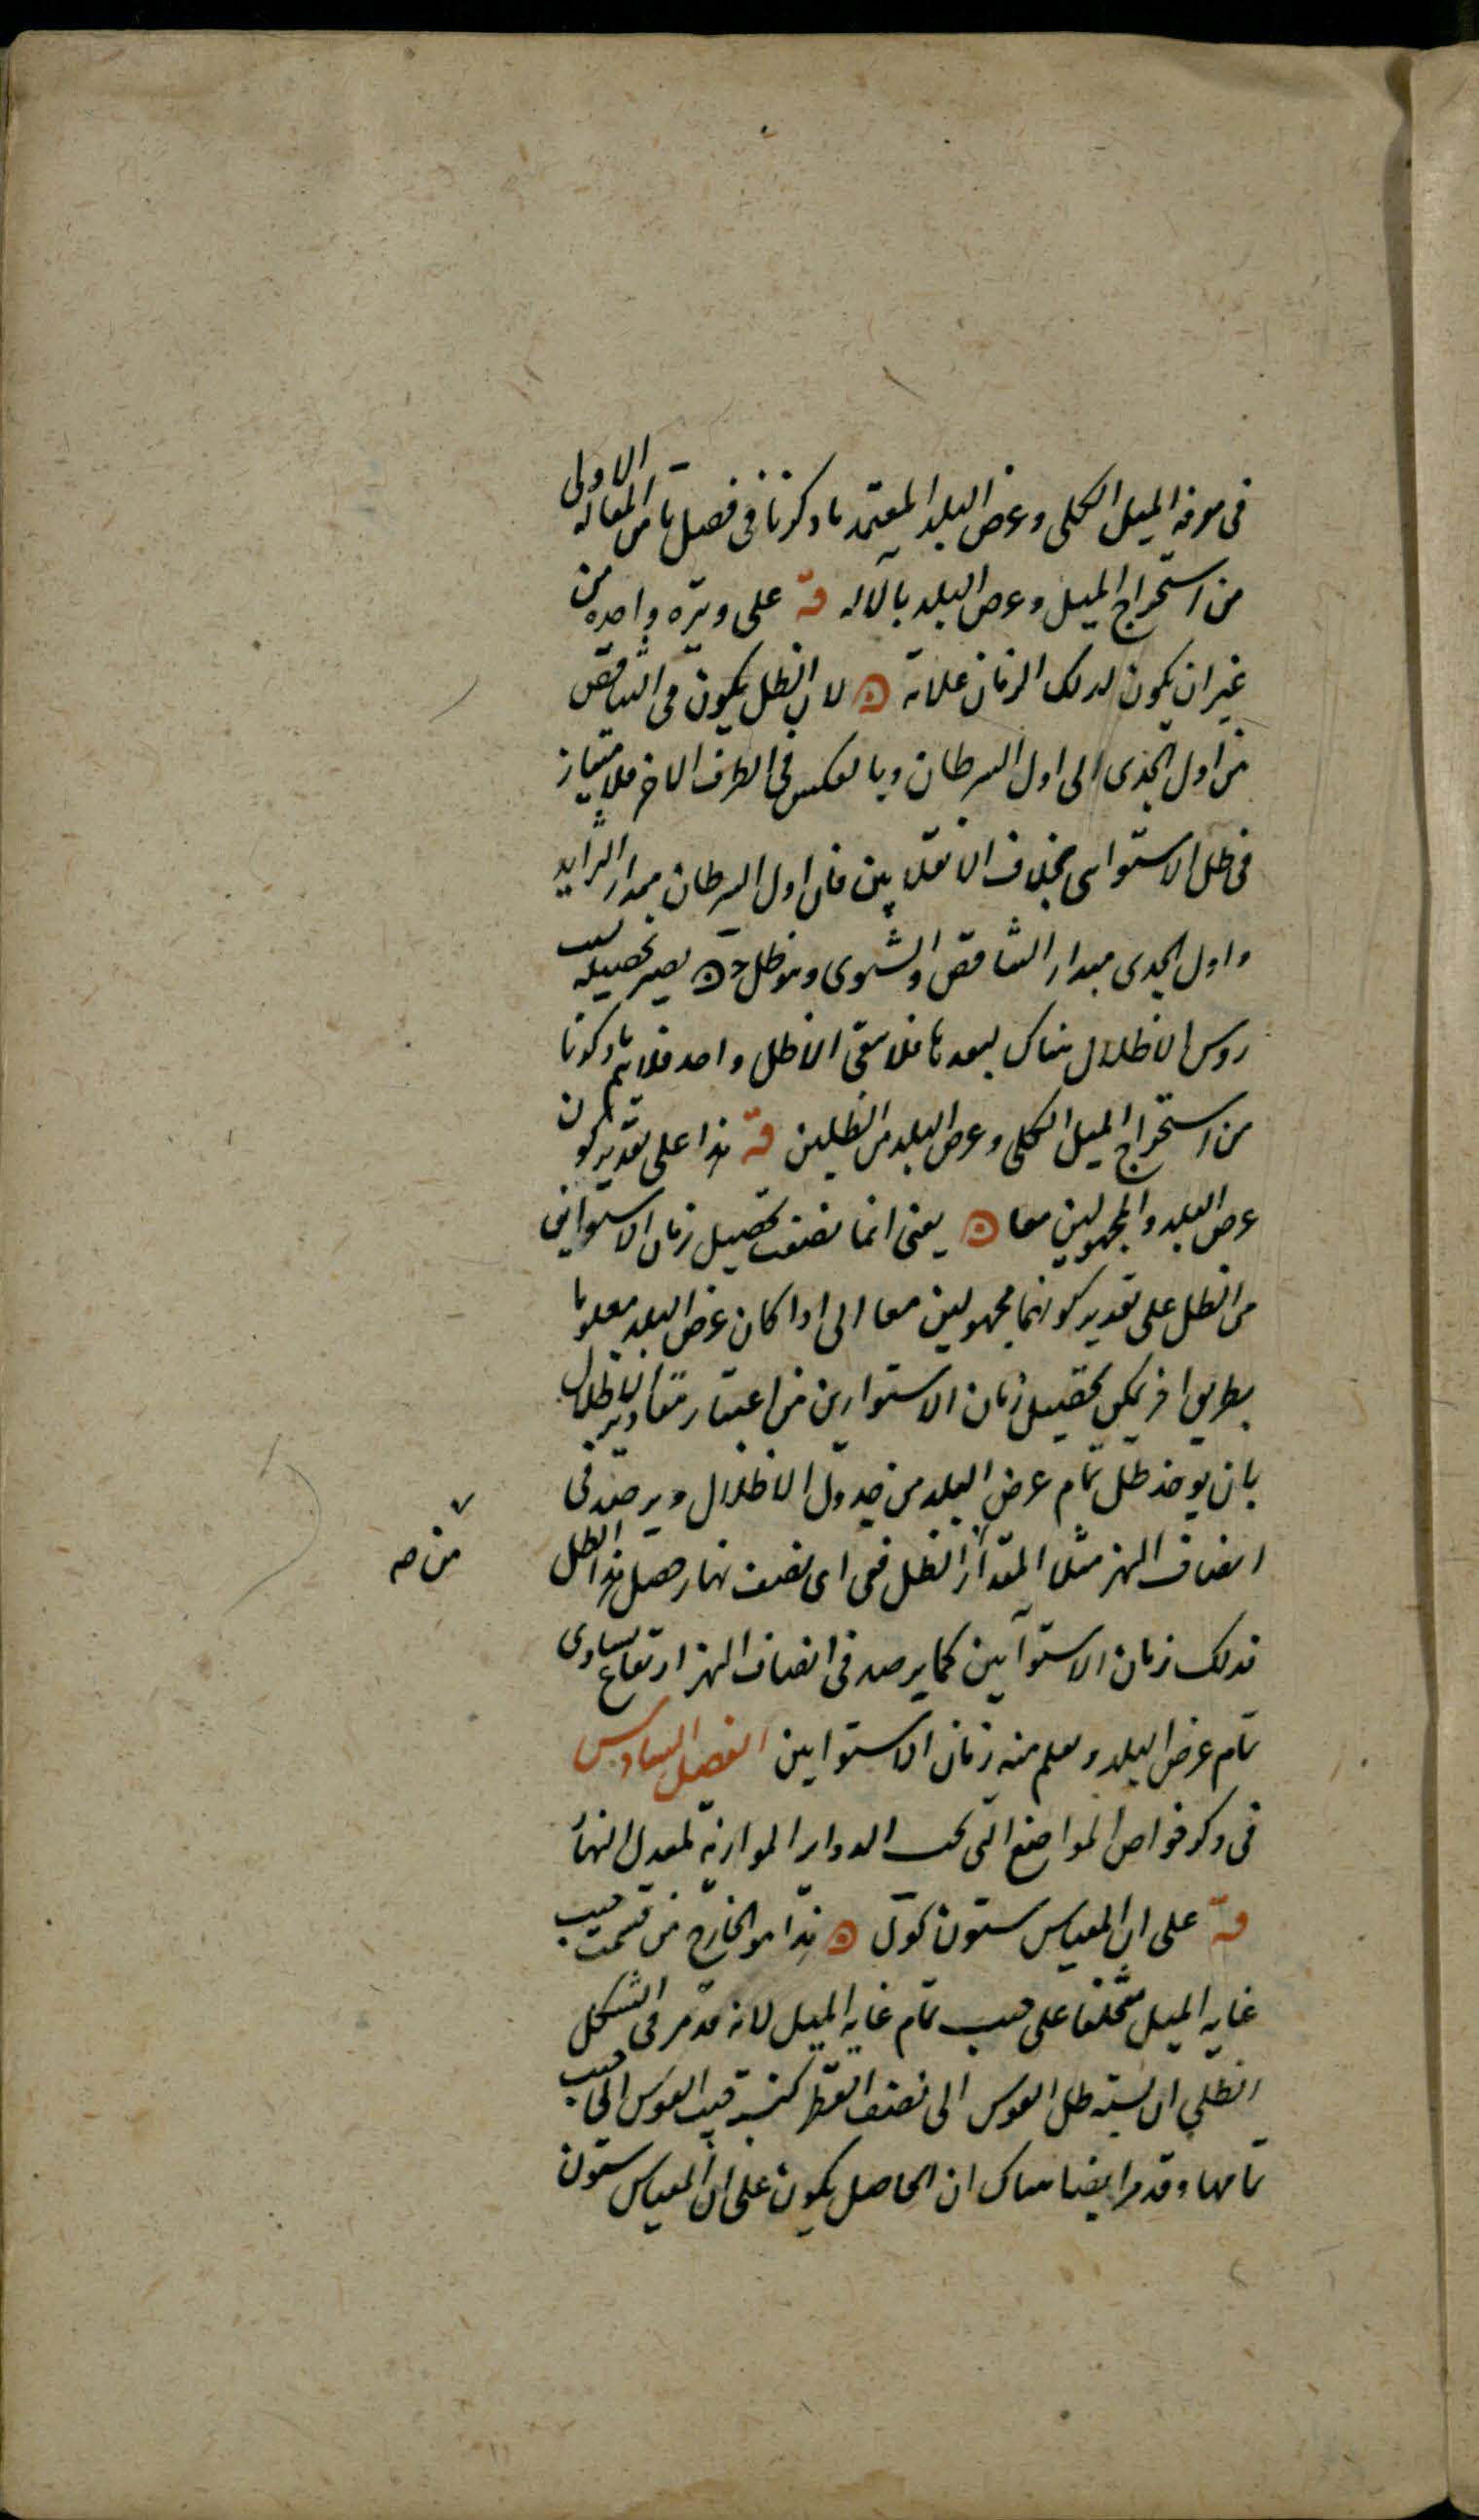 فى معرفه الميل الكلى وعرض البلد المعتمد ما ذكرنا فى فصل ثامن المقاله الاولى
من استخراج الميل وعرض البلد بآلاله قه على وتيره واحده من
غير ان يكون لذلك الزمان علامه ۞ لان الظل يكون فى التناقص
من اول الجدى الى اول السرطان وبالعكس فى الطرف الاخر فلا يمتاز
فى ظل الاستواى بخلاف الانقلابين فان اول السرطان مبدا التزايد
واول الجدى مبدا التناقص والشتوى وهو ظل ح ۞ يصير تحصيله
روس الاظلال هناك لبعدها فلا يبقى الا ظل واحد فلا يتم ما ذكرنا
من استخراج الميل الكلى وعرض البلد من الظلين قه هذا على تقدير كون
عرض البلد و المجهولين معا ۞ يعنى انما يضعف تحصيل زمان الاستوائين
من الظل على تقدير كونهما مجهولين معا اى اذا كان عرض البلد معلوما
بطريق اخر يمكن تحصيل زمان الاستوايين من اعتبار مقادير الاظلال
بان يوخذ ظل تمام عرض البلد من جدول الاظلال ويرصد فى
انصاف النهر مثل المقدار الظل ففى اى نصف نهار حصل هذا الظل
فذلك زمان الاستوآيين كما يرصد فى انصاف النهر ارتفاع يساوى
تمام عرض البلد ويعلم منه زمان الاستوايين الفصل السادس
فى ذكر خواص المواضع التى تحت الدواير الموازية لمعدل النهار
قه على ان المقياس ستون كوىّ ۞ هذا هو الخارج من قسمت جيب
غايه الميل منحطا على جيب تمام غايه الميل لانه قد مر فى الشكل
الظلي ان نسبة ظل القوس الى نصف القطر كنسبة جيب القوس الى جيب
تمامها وقد مر ايضا هناك ان الحاصل يكون على ان المقياس ستون